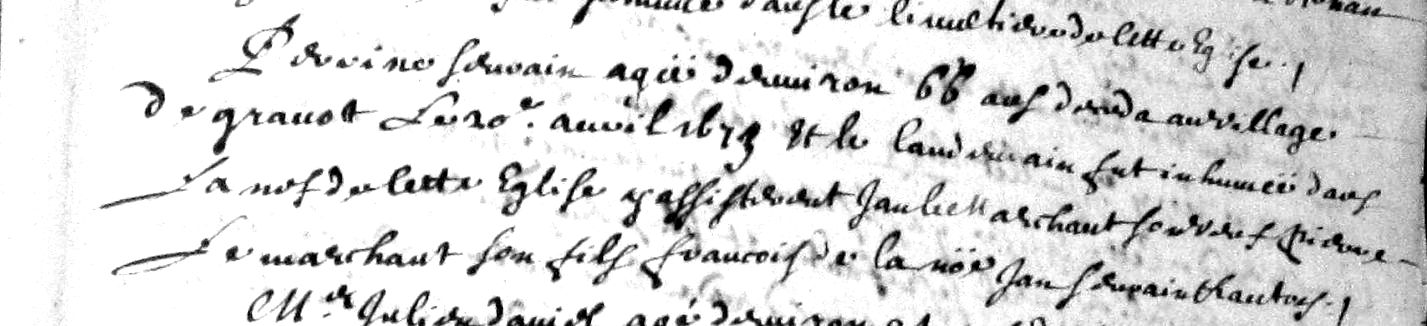 dans le cimetiere de cette Eglise /
Perrine Servain agéé d'environ 66 ans deceda au village
de gravot Le 20e. avvil 1673 Et le landemain fut inhuméé dans
La nef de cette Eglise y assisterent Jan le Marchant son vef pierre
Le marchant son fils francois de la nöe Jan Servain & autres. /
Mre Julien daniel agé d'environ